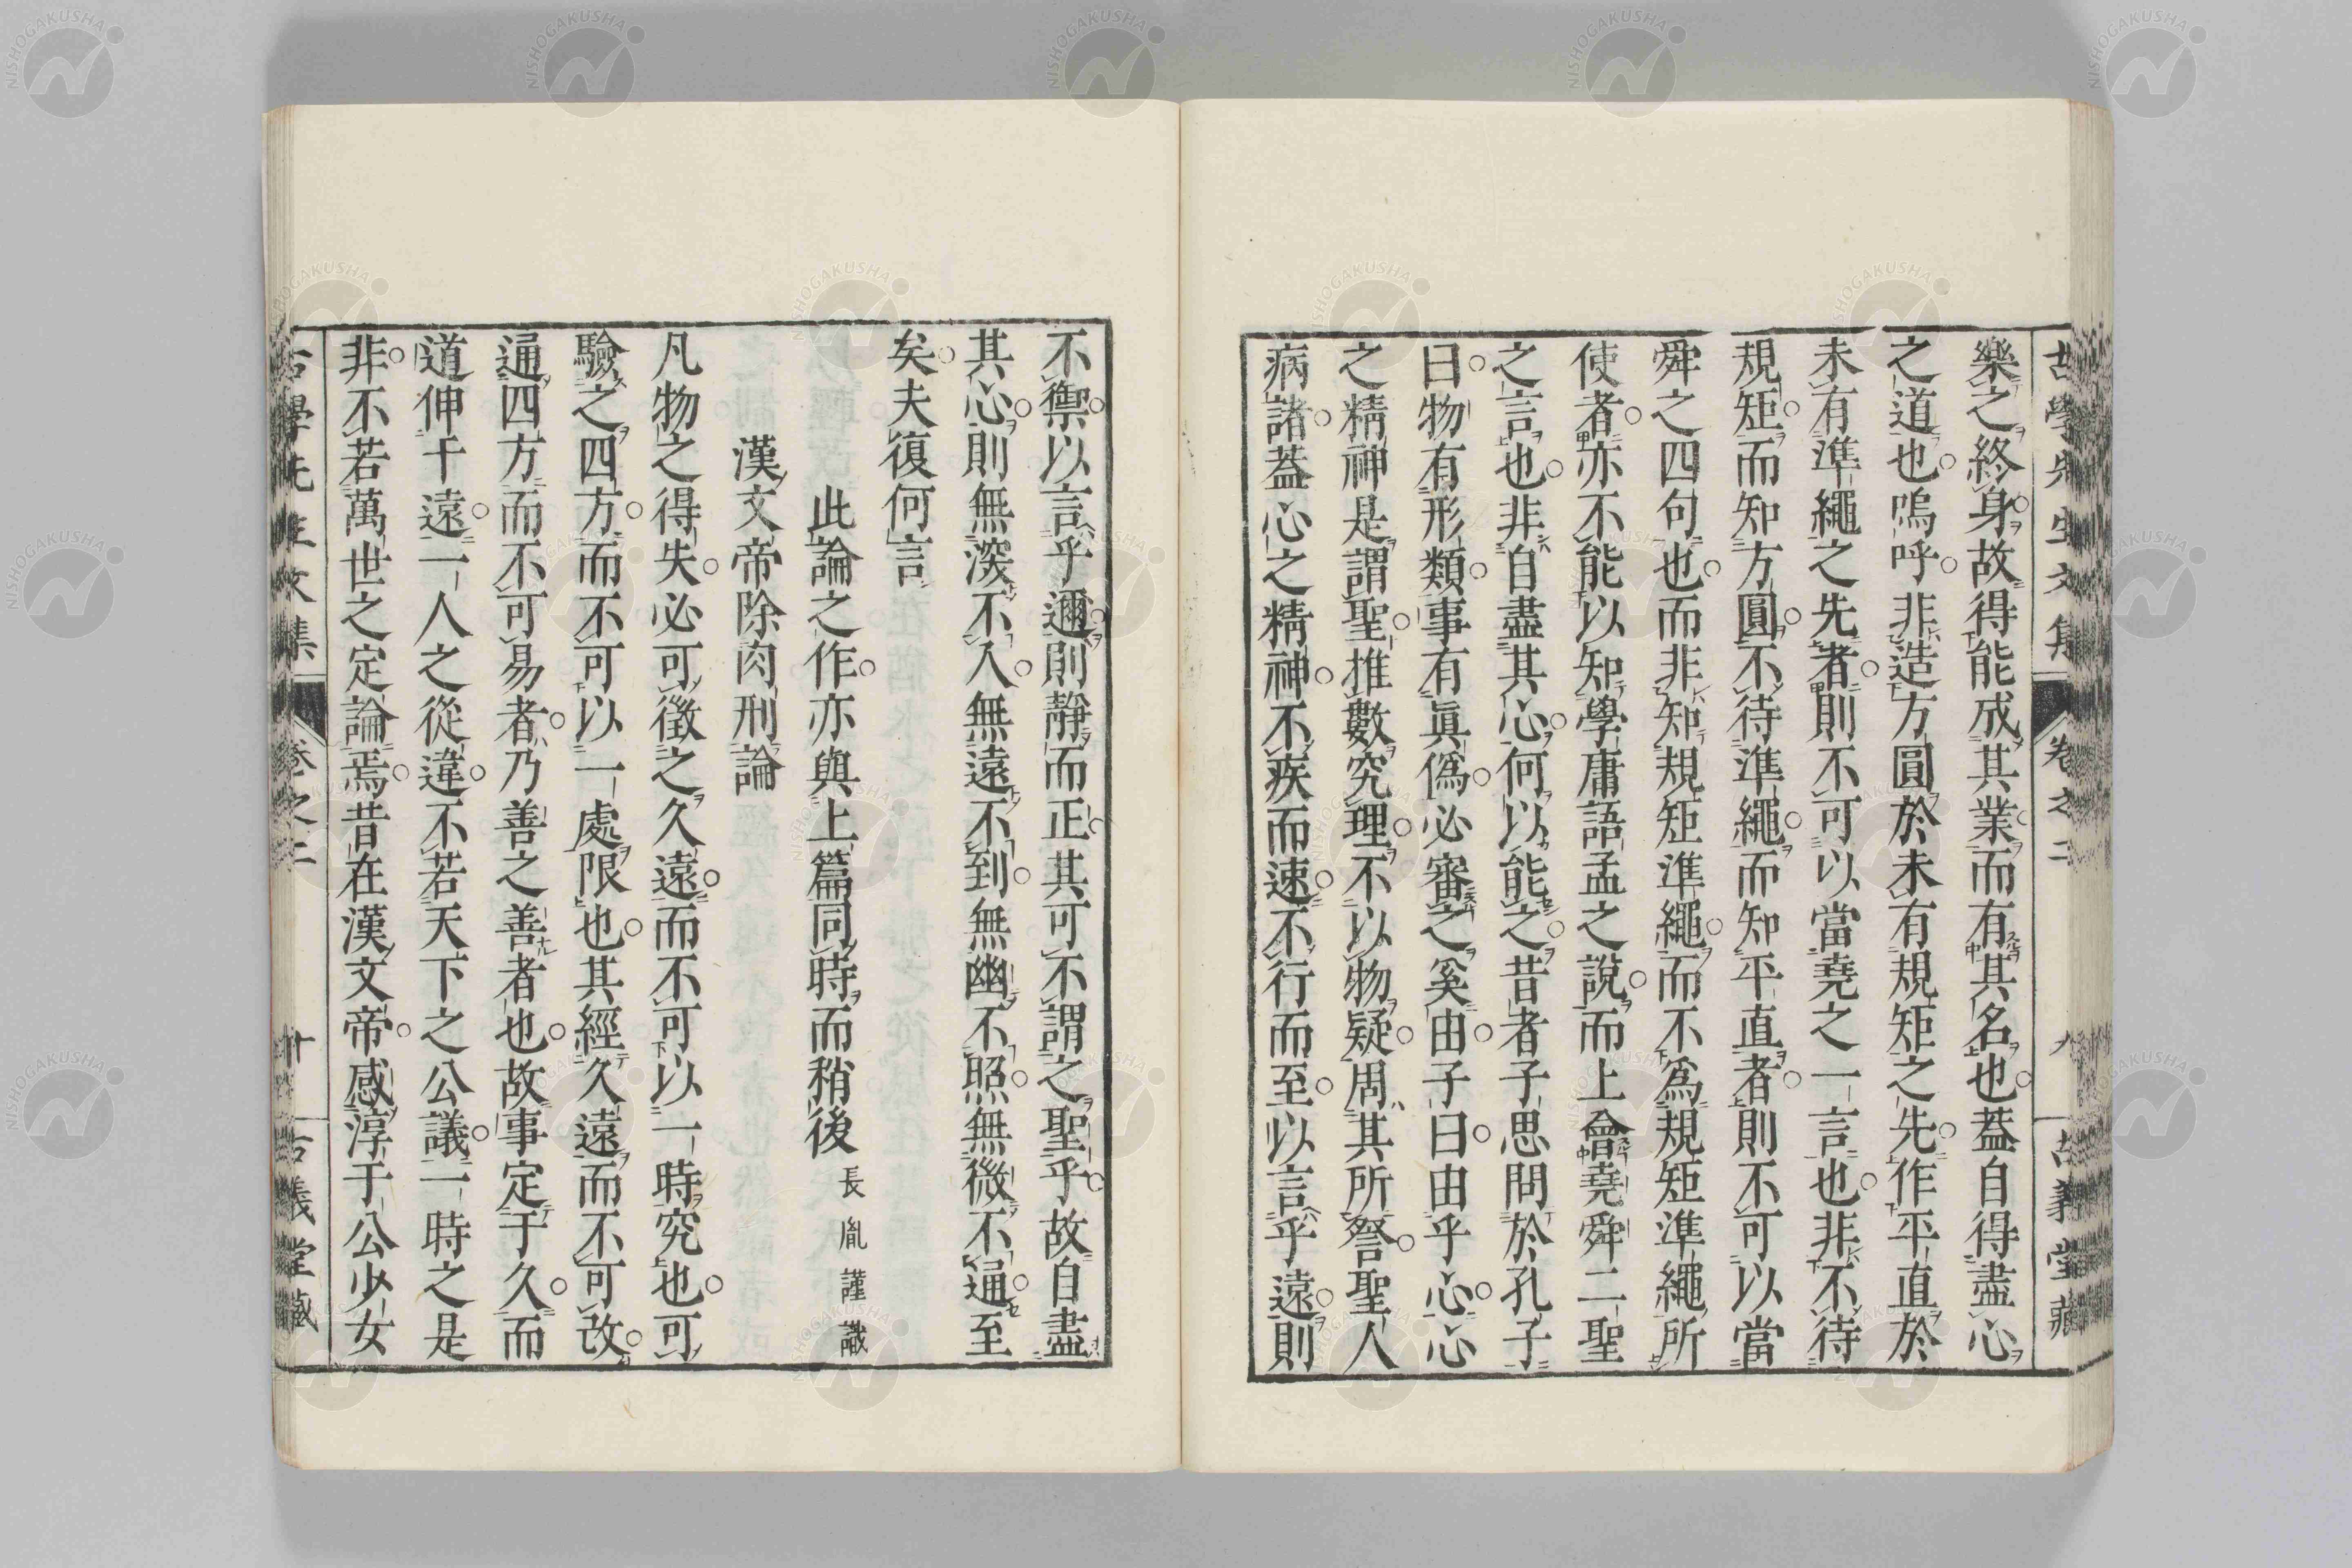 樂之終身故得能成其業而有其名也葢自得盡心
之道也嗚呼非造方圓於未有規矩之先作平直於
未有準繩之先者則不可以當堯之一言也非不待
規矩而知方圓不待準繩而知平直者則不可以當
舜之四句也而非知規矩準繩而不爲規矩準繩所
使者亦不能以知學庸語孟之說而上會堯舜二聖
之言也非自盡其心何以能之昔者子思問於孔子
曰物有形類事有眞僞必審之奚由子曰由乎心心
之精神是謂聖推數究理不以物疑周其所詧聖人
病諸葢心之精神不疾而速不行而至以言乎遠則
不禦以言乎邇則靜而正其可不謂之聖乎故自盡
其心則無深不入無遠不到無幽不照無微不通至
矣夫復何言
此論之作亦與上篇同時而稍後 長胤謹識
漢文帝除肉刑論
凡物之得失必可徵之久遠而不可以一時究也可
驗之四方而不可以一處限也其經久遠而不可改
通四方而不可易者乃善之善者也故事定于久而
道伸于遠一人之從違不若天下之公議一時之是
非不若萬世之定論焉昔在漢文帝感淳于公少女
古學先生文集 卷之二 十 古義堂藏
古學先生文集 卷之二 九 古義堂藏
NISHOGAKUSHA